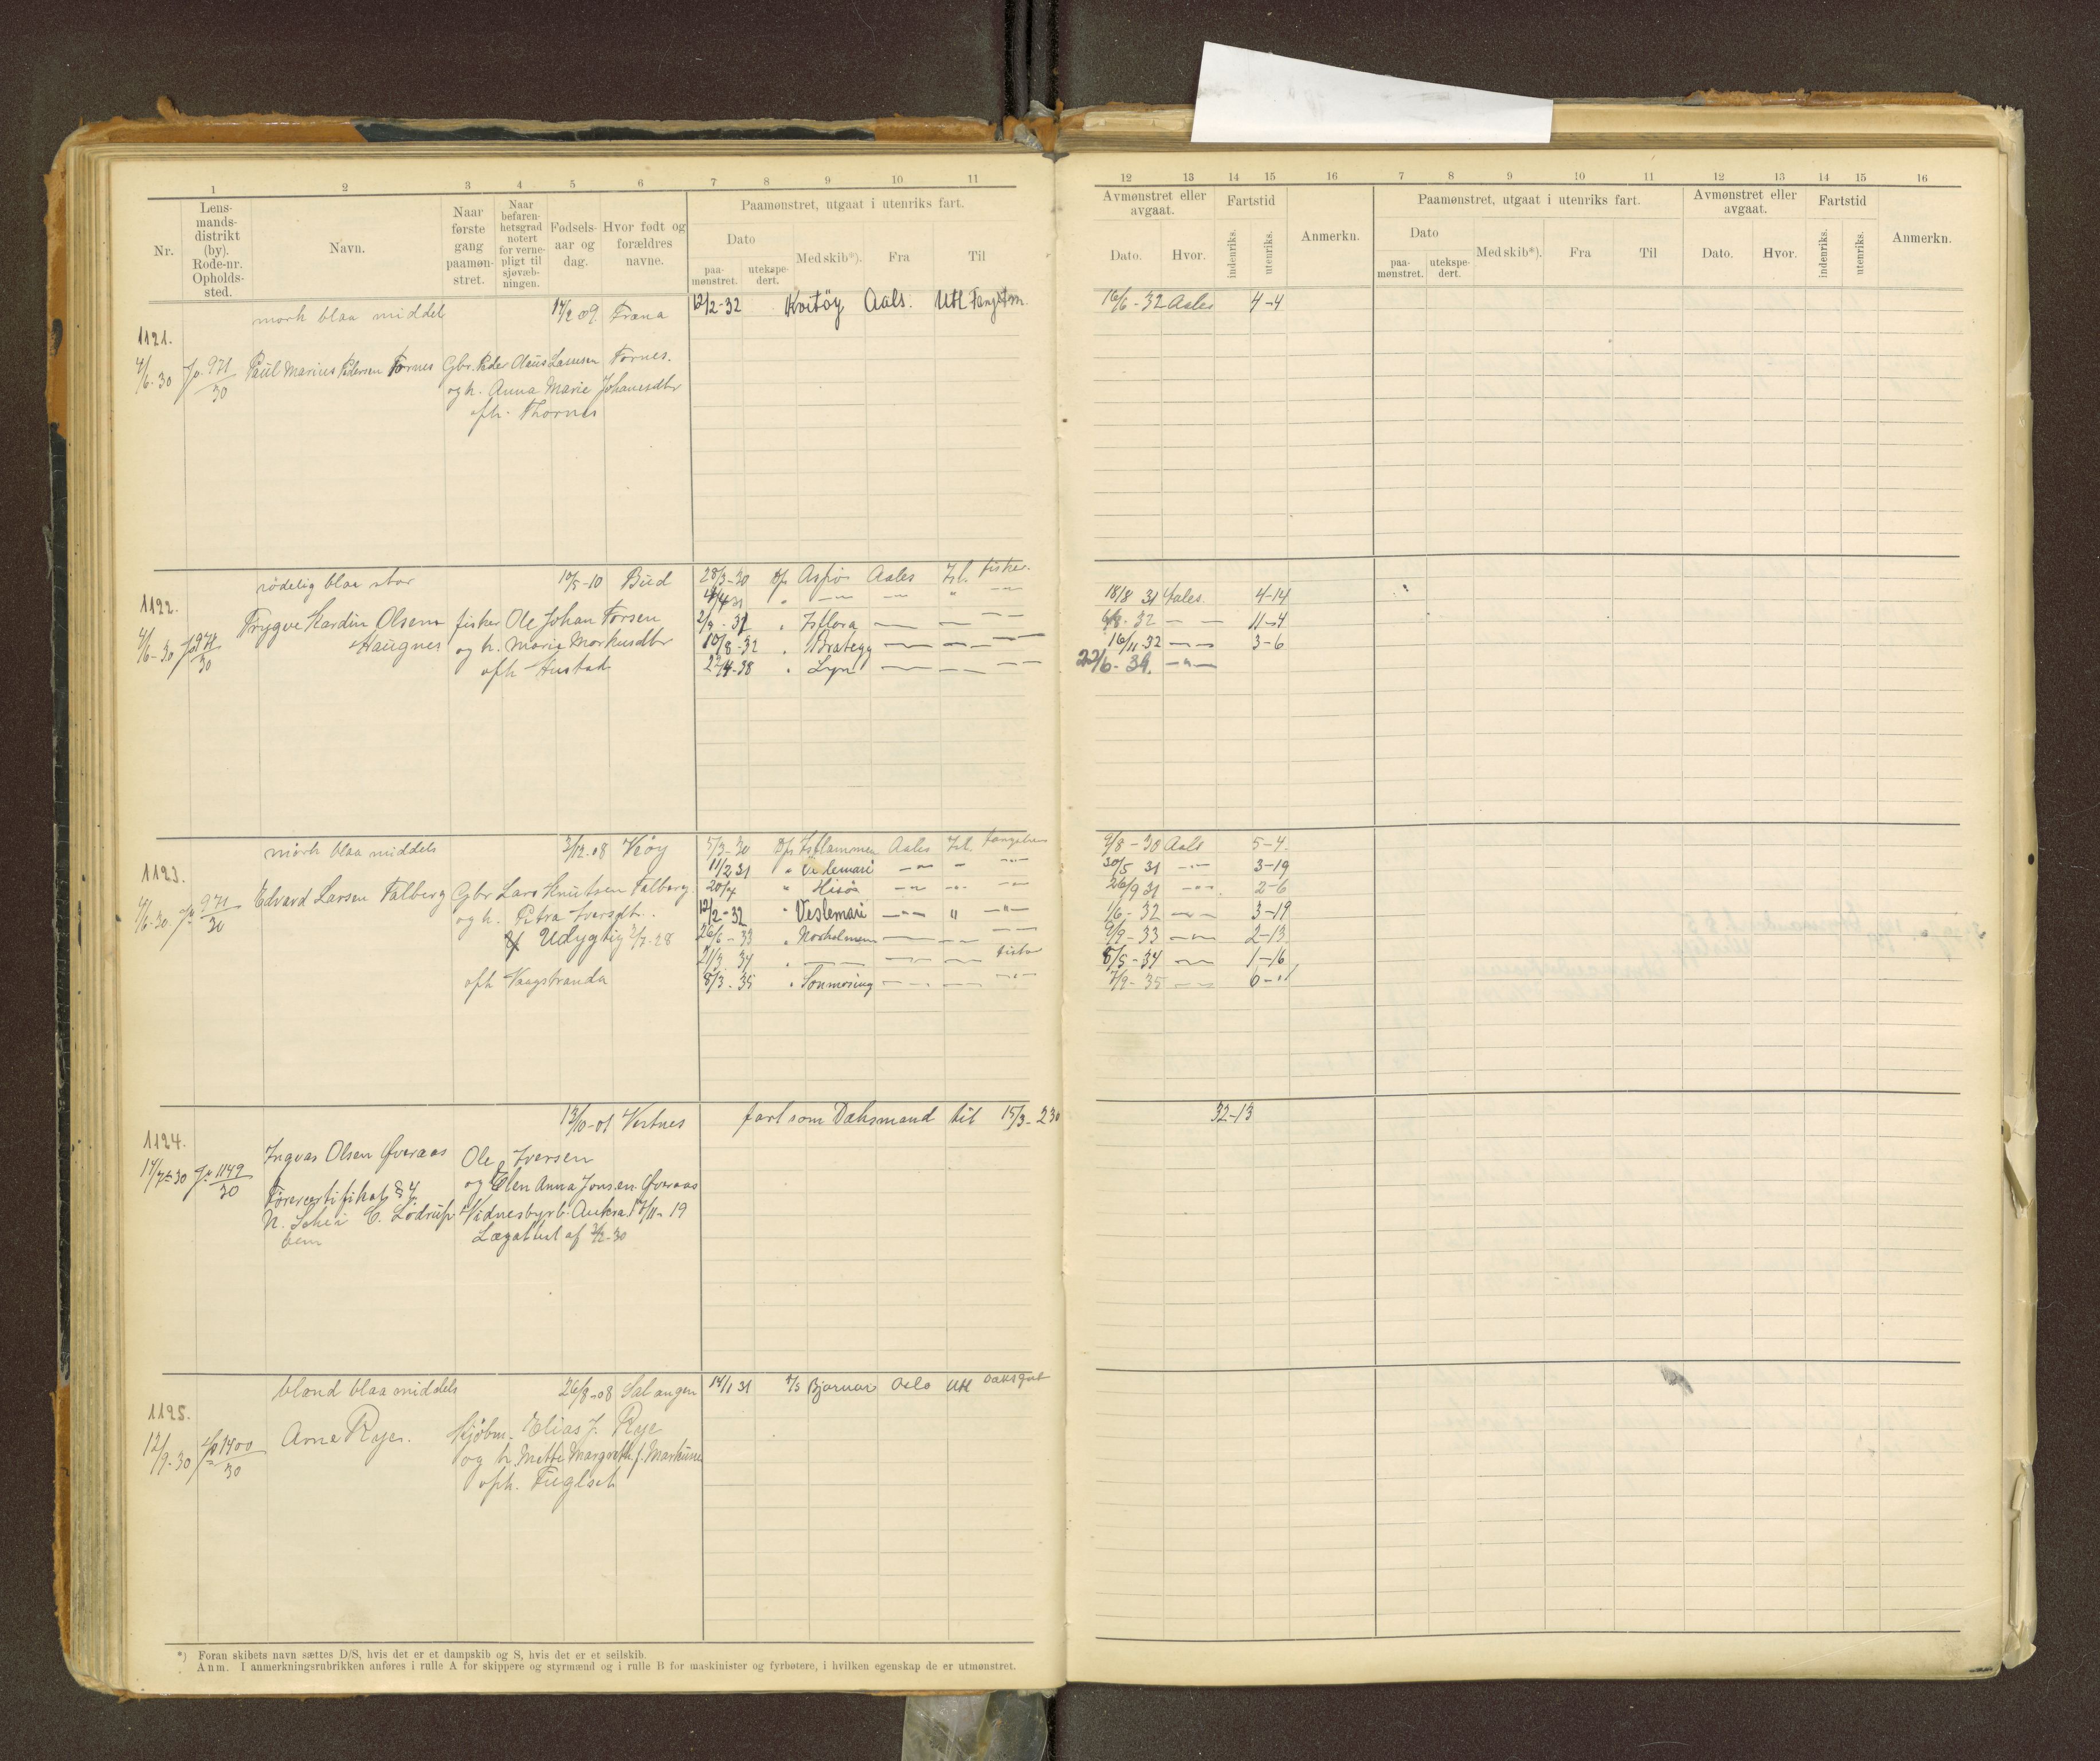 1 2 3 4 5 6 7 8 9 10 11
Nr.
Lens-
mands-
distrikt
(by).
Rode-nr.
Opholds-
sted.
Navn.
Naar
første
gang
paamøn-
stret.
Naar
befaren-
hetsgrad
notert
for verne-
pligt til
sjøvæb-
ningen.
Fødsels-
aar og
dag.
Hvor født og
forældres
navne.
Paamønstret, utgaat i utenriks fart.
Dato
paa-
mønstret.
utekspe-
dert.
Med skib*).
Fra
Til
mørk blaa middel 14/2 09. Fræna 12/2-32 Kvitöy Aals. Utl Fangstm.
1121.
4/6-30 Jo 971/30 Paul Marius Pedersen Tornes Gbr. Peder Olaus Larssen Tornes.
og h. Anna Marie Johanesdtr
oph. Thornes
rödelig blaa stor 10/5-10 Bud 28/3-30 D/s Aspö Aales Isl. fisker.
1122. 4/4 31 " — — " —
Trygve Hardin Olsen fisker Ole Johan Torsen 2/3-32 " Isflora — — —
4/6-30 Jo 971/30 Haugnes og h. Marie Markusdtr 10/8-32 " Brategg — — —
oph Hustad 22/4-38 " Lyn — — —
mörk blaa middels 3/12.08 Veöy 5/3-30 D/s Isflammen Aales Isl. fangstm
1123. 11/2 31 " Veslemari — " — " —
4/6-30 Jo 971/30 Edvard Larsen Talberg Gbr Lars Knutsen Talberg. 20/7 " Hisö — " — " —
og h. Petra Iversdtr. 12/2-32 " Veslemari — " — " — " —
Udygtig 2/7-28 26/6-33 " Norholmen — — —
21/3 34 " — — — fisker
oph Vaagstranda 8/3-35 " Sunmöring — — —
13/10-01 Vestnes fart som Dæksmand til 15/3-230
1124.
14/7-30 Jo 1149/30 Ingvar Olsen Øveraas Ole Iversen
og Elen Anna Jonsen Øveraas
Førercertifikat § 4
N. Schei C. Lødrup Vidnesbyrd Aukra 17/11-19
Lægattest af 3/2-30
blond blaa middels 26/8-08 Salangen 14/1 31 Bjarnar Oslo Utl Dæksgut
1125.
12/9-30 Jo 1400/30 Arne Rye. Skjöbm. Elias J. Rye
og h. Mette Margrethe f. Markusen
oph. Fuglset
*) Foran skibets navn sættes D/S, hvis det er et dampskib og S, hvis det er et seilskib.
Anm. I anmerkningsrubrikken anføres i rulle A for skippere og styrmænd og i rulle B for maskinister og fyrbøtere, i hvilken egenskap de er utmønstret.
12 13 14 15 16 7 8 9 10 11 12 13 14 15 16
Avmønstret eller
avgaat.
Dato. Hvor.
Fartstid
indenriks.
utenriks.
Anmerkn.
Paamønstret, utgaat i utenriks fart.
Dato
paa-
mønstret.
utekspe-
dert.
Med skib*).
Fra
Til
Avmønstret eller
avgaat.
Dato. Hvor.
Fartstid
indenriks.
utenriks.
Anmerkn.
16/6-32 Aales 4-4
18/8 31 Aales. 4-14
6/8-32 — — 11-4
16/11 32 — — 3-6
22/6-39. — " —
9/8-30 Aals 5-4
30/5 31 — " — 3-19
26/9 31 — " — 2-6
1/6-32 — — 3-19
9/9-33 — — 2-13
8/5-34 — — 1-16
7/9-35 — — 6-"
32-13